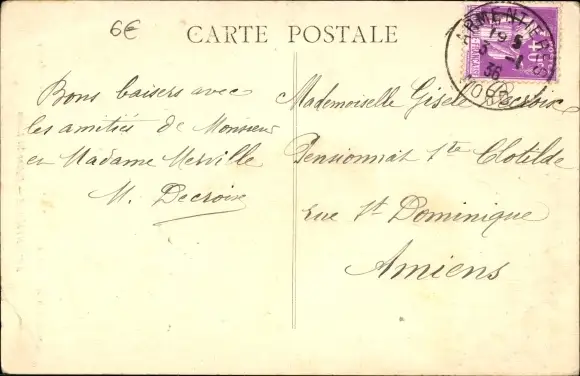 6€
CARTE POSTALE
ARMENTIÈRES
19 5
5 -1
36
NORD
40c
Bons baisers avec
les amitiés de Monsieur
et Madame Merville
M. Decroix
Mademoiselle Gisèle Decroix
Pensionnat Ste Clotilde
rue St Dominique
Amiens